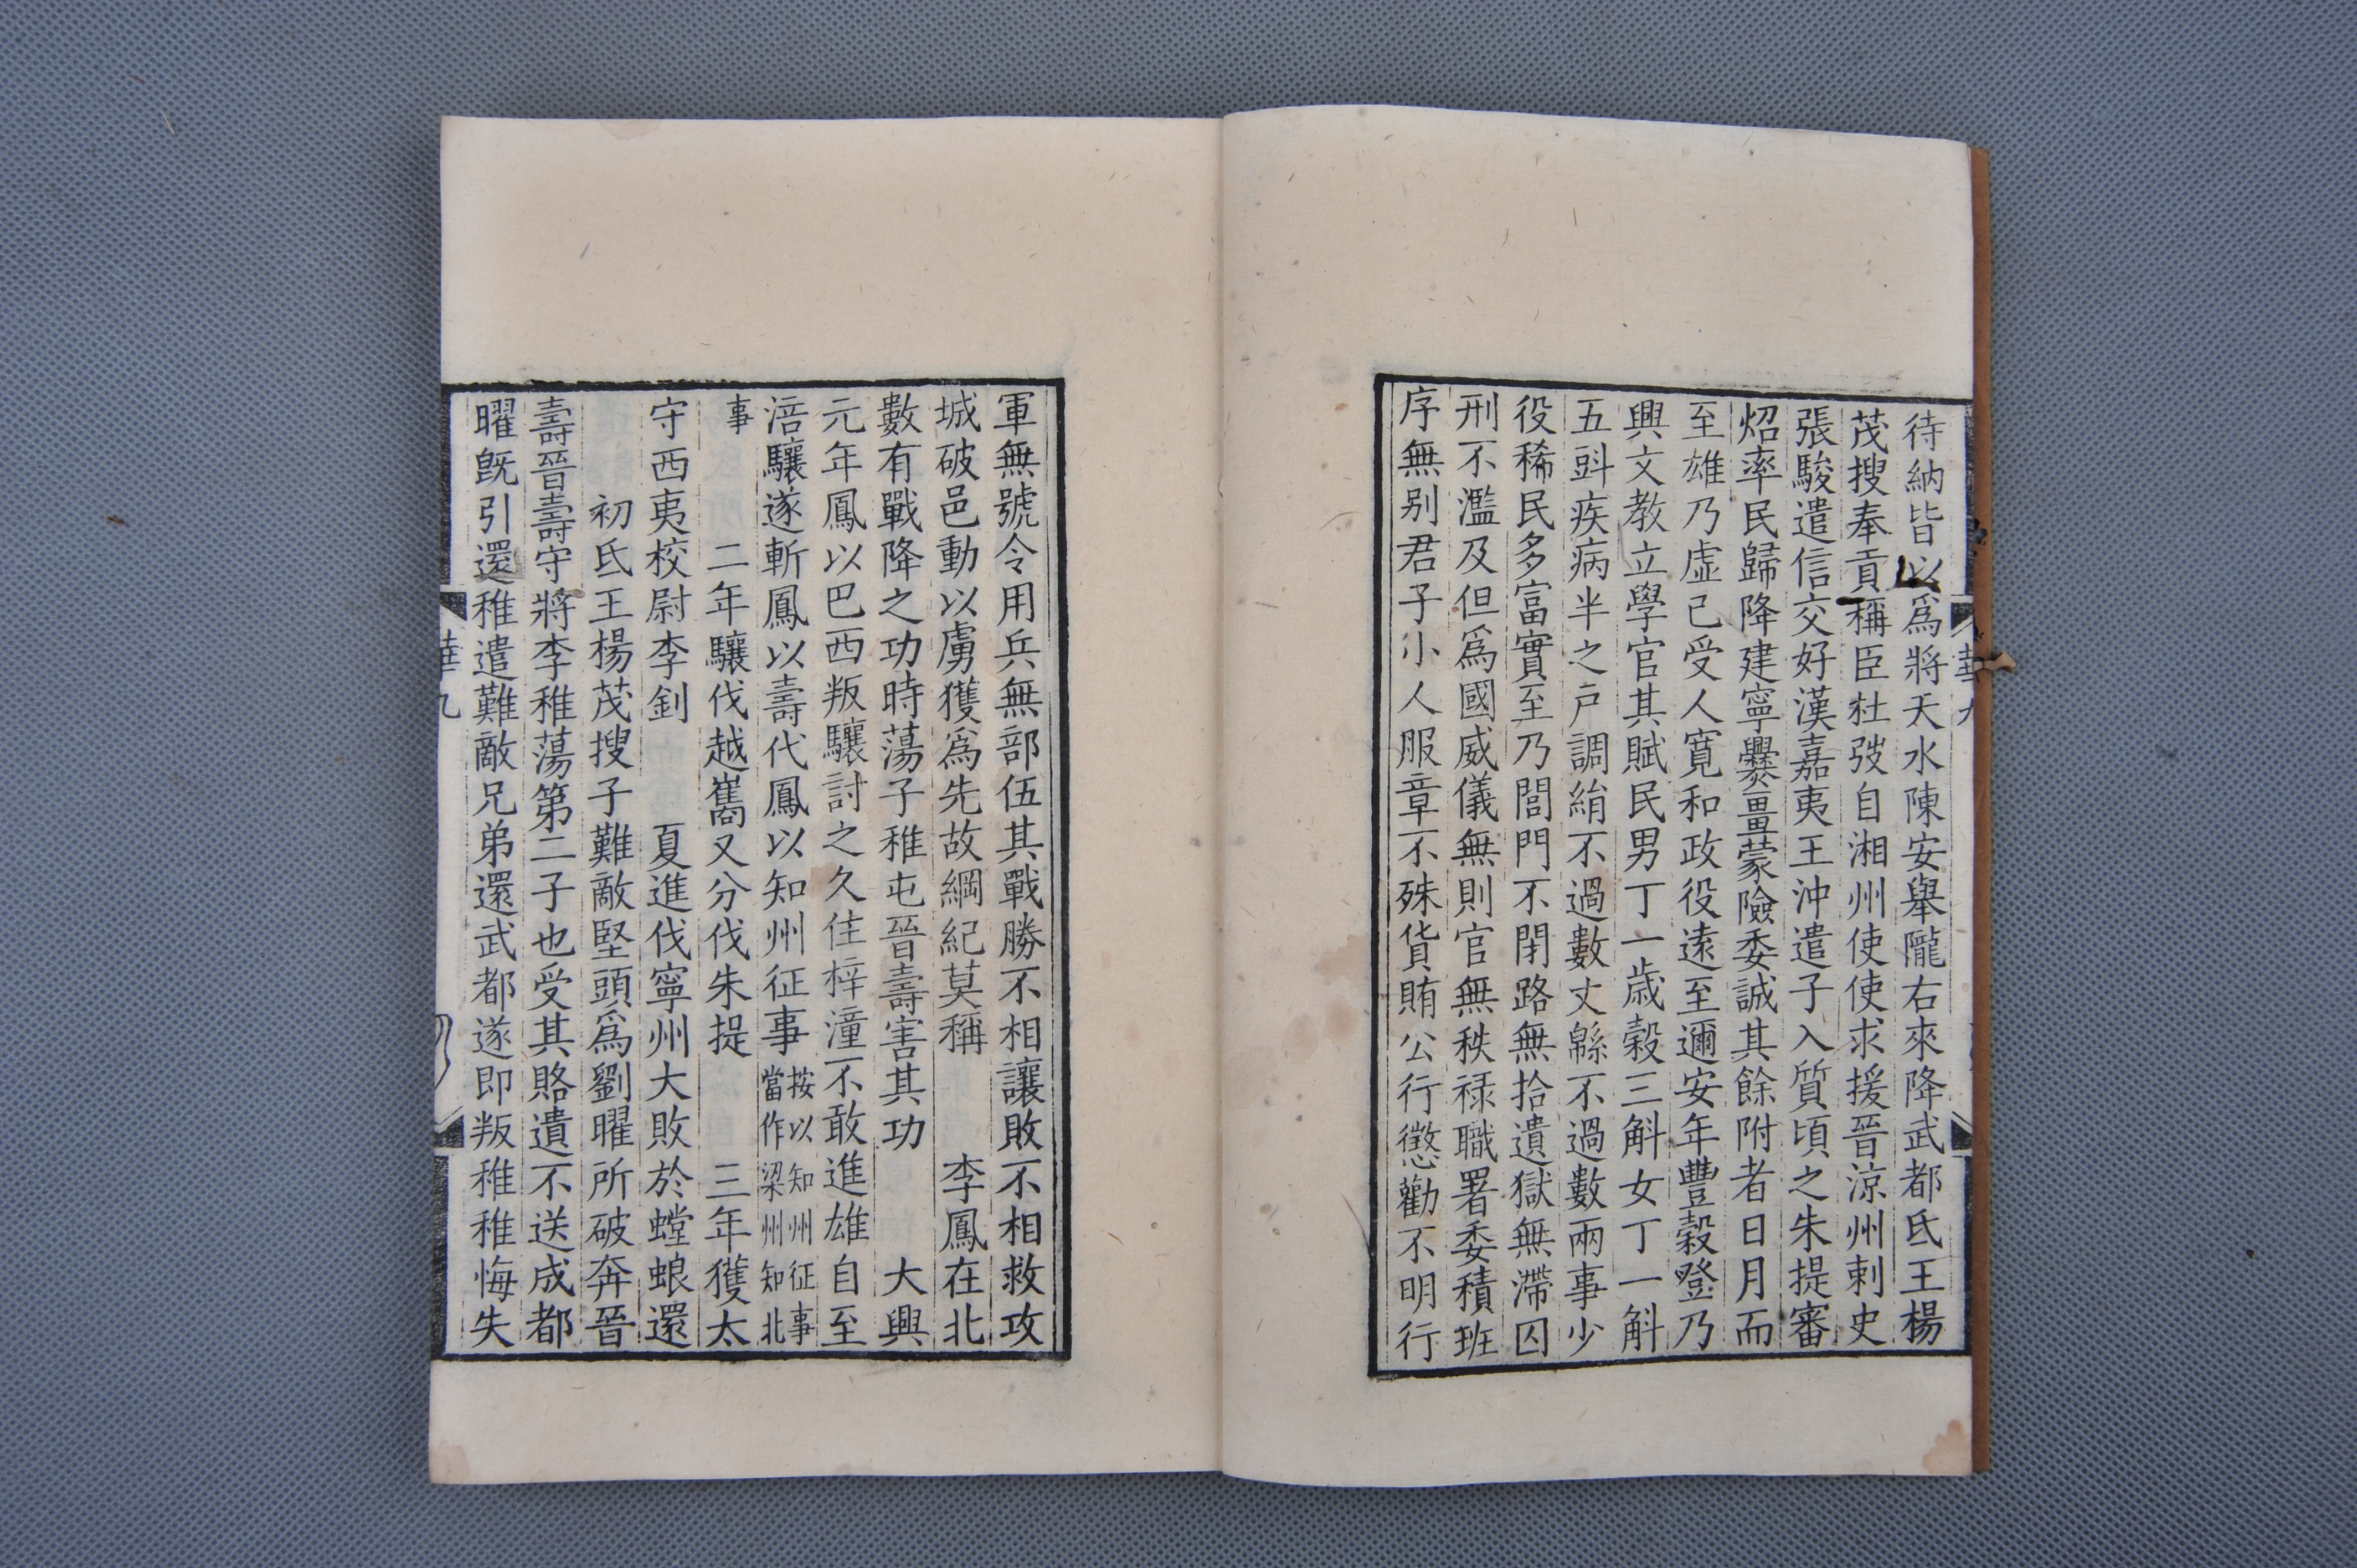 待納皆以爲將天水陳安舉隴右來降武都氐王楊
茂搜奉貢稱臣杜弢自湘州使使求援晉涼州刺史
張駿遣信交好漢嘉夷王沖遣子入質頃之朱提審
炤率民歸降建寧爨畺蒙險委誠其餘附者日月而
至雄乃虛己受人寬和政役遠至邇安年豐穀登乃
興文教立學官其賦民男丁一歲穀三斛女丁一斛
五㪷疾病半之戶調絹不過數丈緜不過數兩事少
役稀民多富實至乃閭門不閉路無拾遺獄無滯囚
刑不濫及但爲國威儀無則官無秩祿職署委積班
序無別君子小人服章不殊貨賄公行懲勸不明行
華九
軍無號令用兵無部伍其戰勝不相讓敗不相救攻
城破邑動以虜獲爲先故綱紀莫稱　李鳳在北
數有戰降之功時蕩子稚屯晉壽害其功　大興
元年鳳以巴西叛驤討之久住梓潼不敢進雄自至
涪驤遂斬鳳以壽代鳳以知州征事按以知州征事當作梁州知北
事　二年驤伐越嶲又分伐朱提　三年獲太
守西夷校尉李釗　夏進伐寧州大敗於螳蜋還
初氐王楊茂搜子難敵堅頭爲劉曜所破奔晉
壽晉壽守將李稚蕩第二子也受其賂遺不送成都
曜旣引還稚遣難敵兄弟還武都遂即叛稚稚悔失
華九